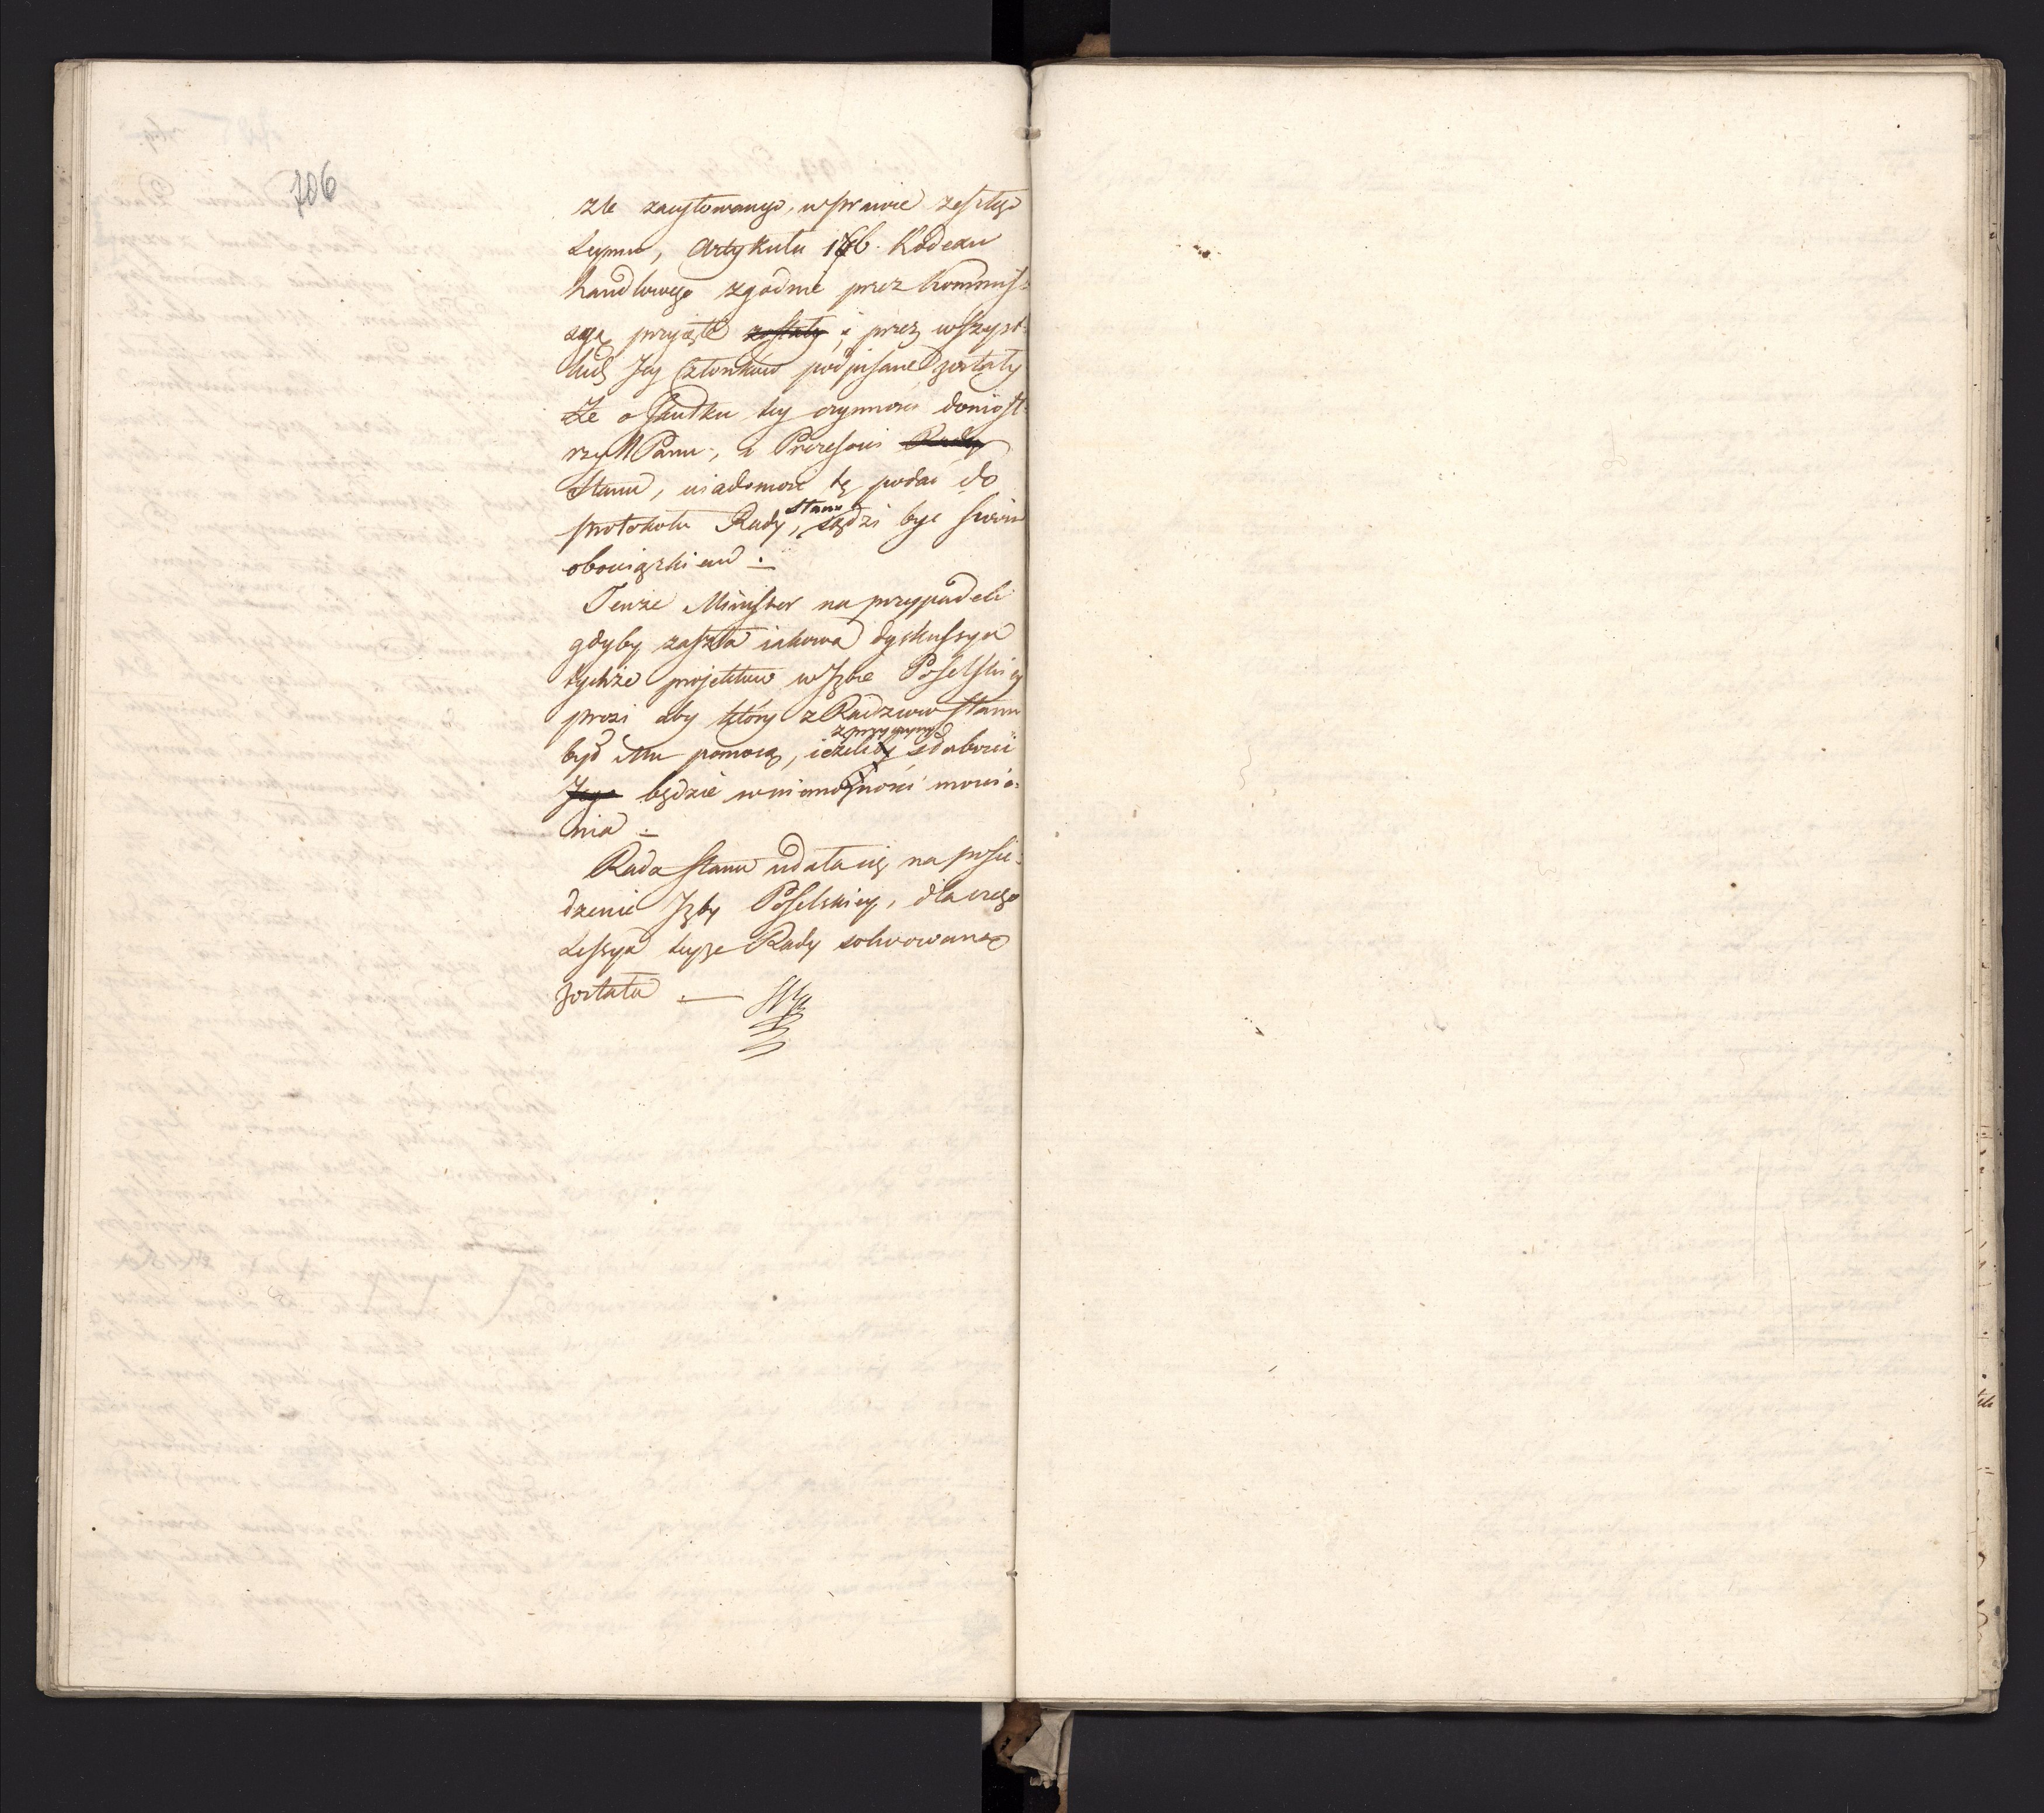 106
źle zacytowanego, w prawie zeszłego
Seymu, Artykułu 176. Kodexu
handlowego zgodnie przez Kommis=
syą przyięte zostały i przez wszyst=
kich Jey Członków podpisane zostały
Że o skutku tey czynności doniost=
rzy Panu, a Prezesowi Rady
Stanu, wiadomość tę podać do
protokołu Rady Stanu, sądzi być swoim
obowiązkiem.
Tenże Minister na przypadek
gdyby zaszła iakowa dyskussya
tychże projektów w Izbie Poselskiey
prosi aby który z Radzców Stanu
był Mu pomocą, ieżeliby z przyczyny słabości
Jego będzie w niemożności mówie=
nia.
Rada Stanu udała się na posie=
dzenie Izby Poselskiey, dla czego
Sessya teyże Rady solwowaną
została.